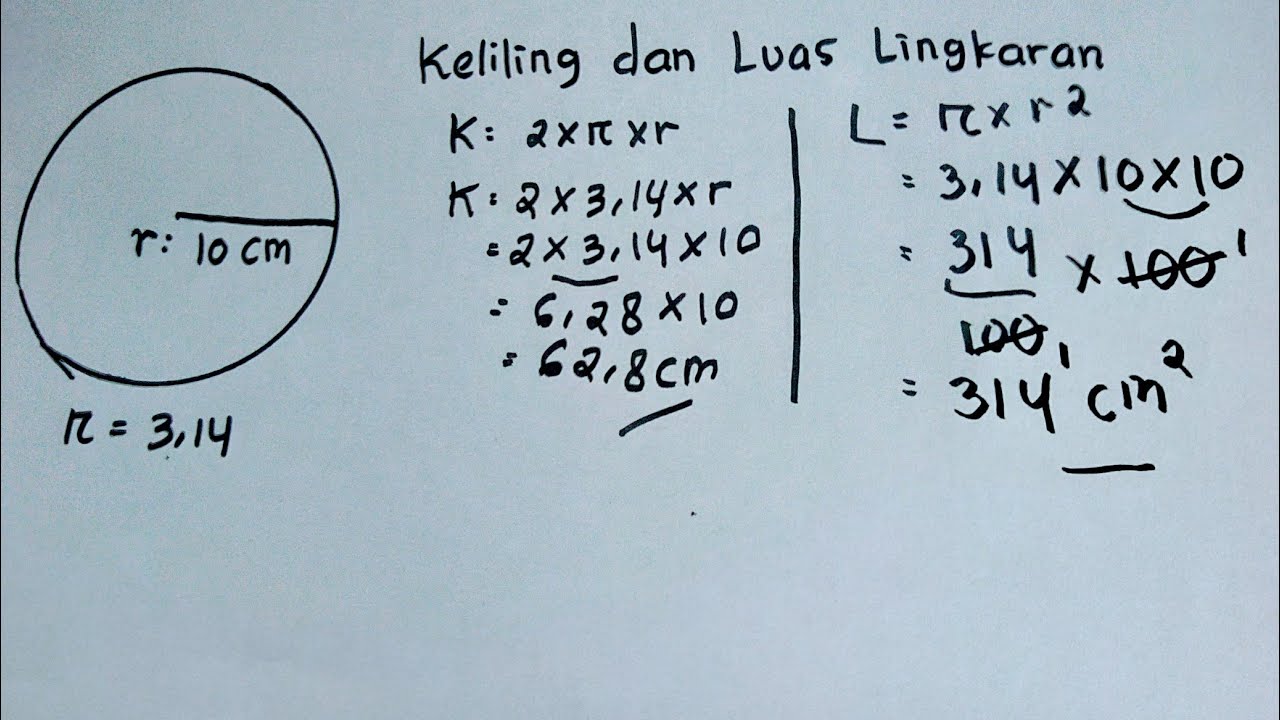 Keliling dan Luas Lingkaran
r: 10 cm
π = 3,14
K: 2 x π x r
K: 2 x 3,14 x r
= 2 x 3,14 x 10
= 6,28 x 10
= 62,8 cm
L = π x r²
= 3,14 x 10 x 10
= 314 x 100 1
100 1
= 314 cm²